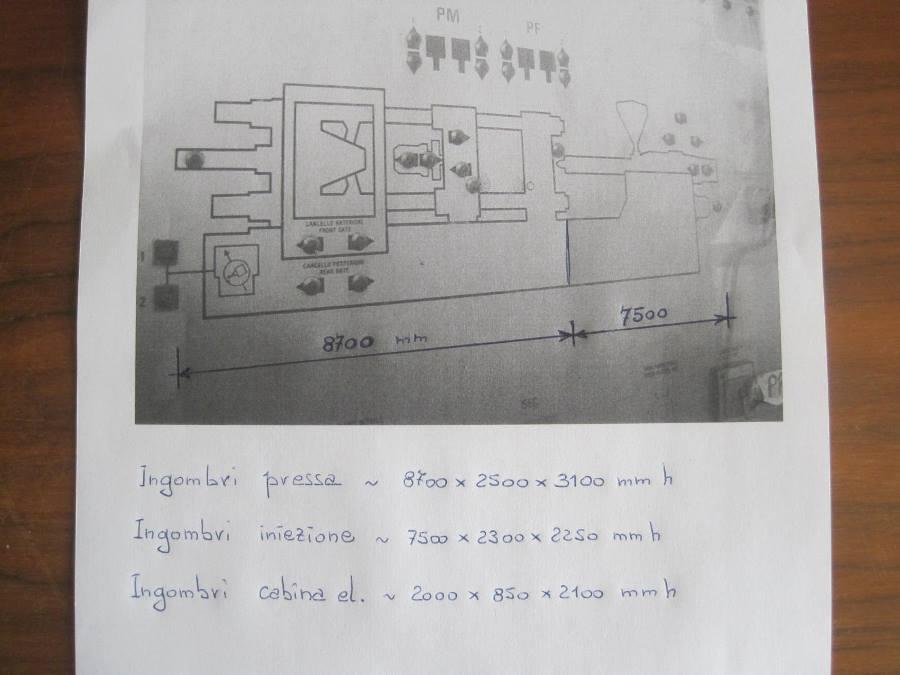 PM
PF
CANCELLO ANTERIORE
FRONT GATE
CANCELLO POSTERIORE
REAR GATE
1
2
8700 mm
7500
Ingombri pressa ~ 8700 x 2500 x 3100 mm h
Ingombri iniezione ~ 7500 x 2300 x 2250 mm h
Ingombri cabina el. ~ 2000 x 850 x 2100 mm h